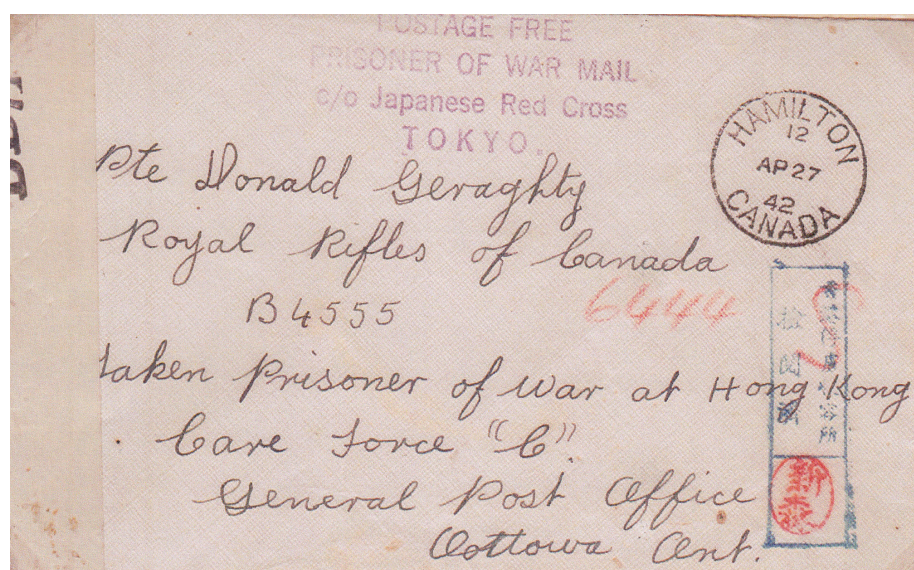 POSTAGE FREE
PRISONER OF WAR MAIL
c/o Japanese Red Cross
TOKYO.
HAMILTON
12
AP 27
42
CANADA
Pte Donald Geraghty
Royal Rifles of Canada
B4555
6444
taken Prisoner of war at Hong Kong
Care Force "C"
General Post Office
Oottowa Ont.